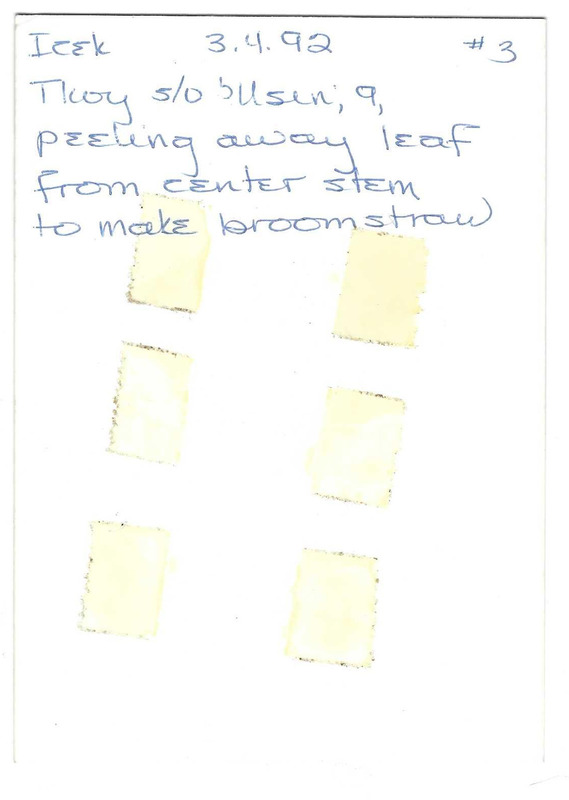 Icek 3.4.92 #3
Tkoy s/o 'Usen, 9,
peeling away leaf
from center stem
to make broomstraw